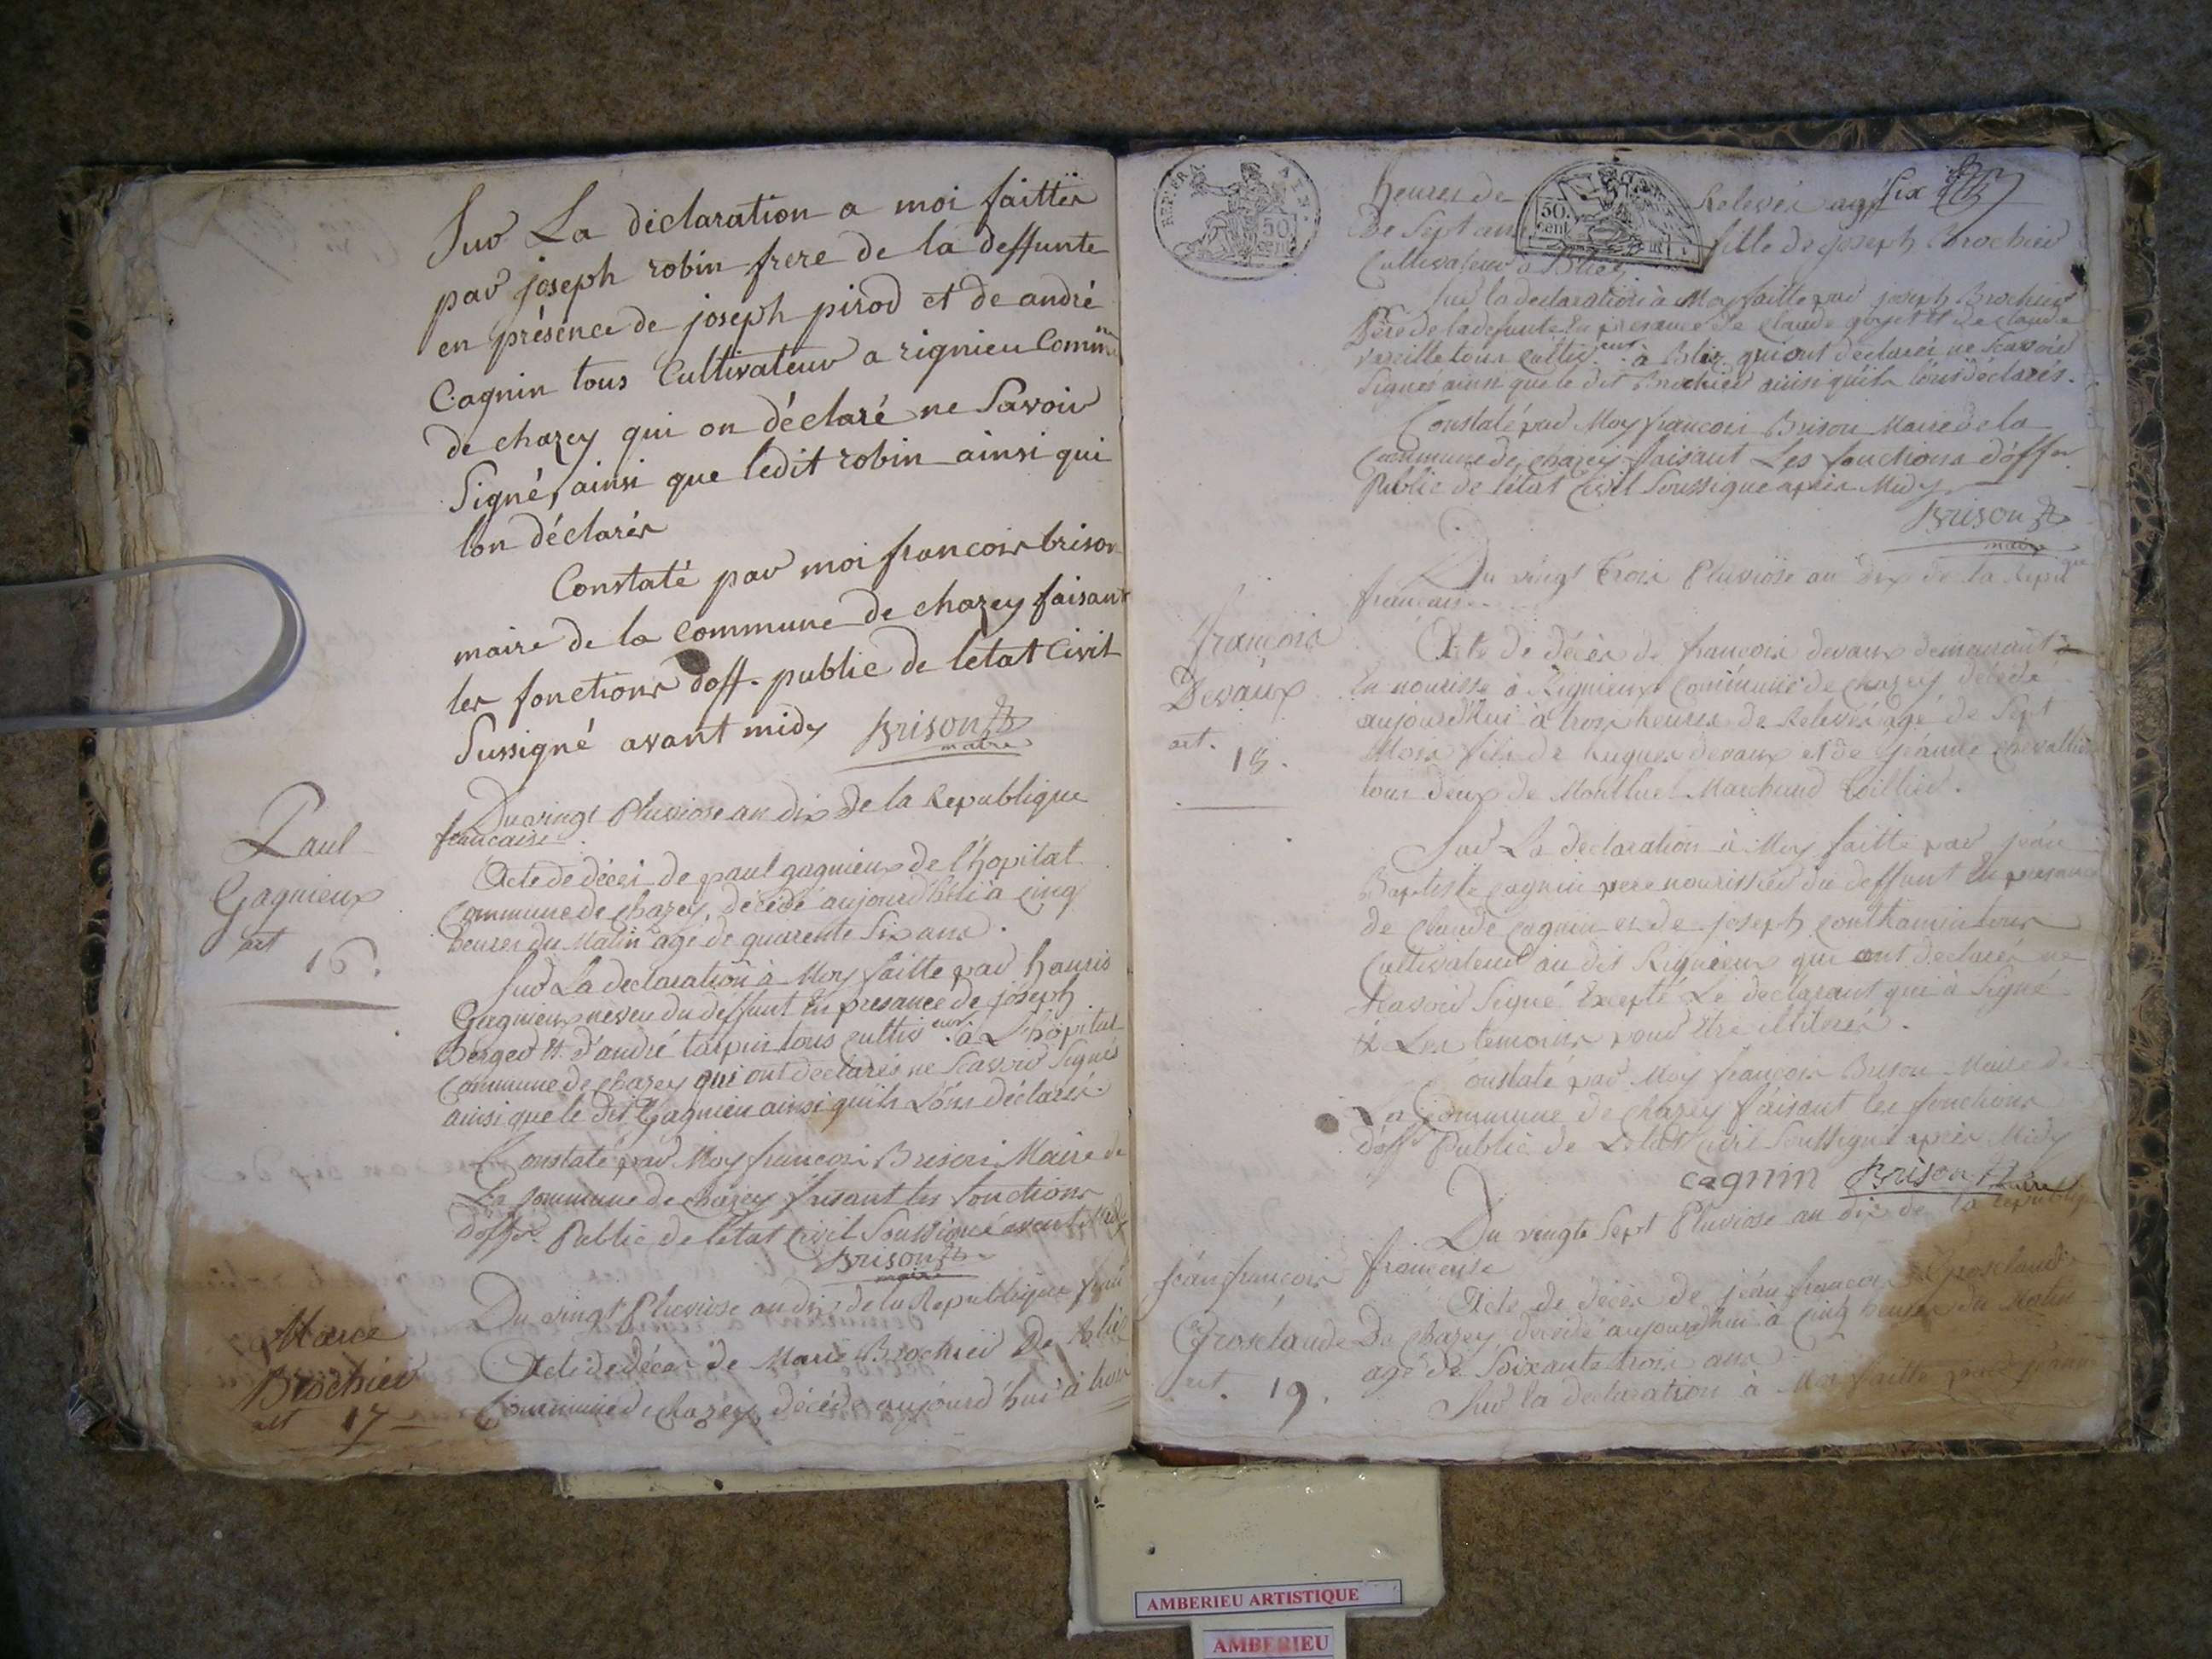 Sur La déclaration a moi faittes
par joseph robin frere de la deffunte
en présence de joseph pirod et de andré
Cagnin tous Cultivateur a rignieu Comm.ne
de chazey qui on déclaré ne Savoir
Signé, ainsi que ledit robin ainsi qui
lon déclarés
Constaté par moi francois brison
maire de la commune de chazey faisant
les fonctions d'off. public de letat Civil
Sussigné avant midy Brison
maire
Du vingt Pluviose an dix de la Republique
francaise
Paul
Gagnieux
art
16.
Acte de décès de paul gagnieux de l'hopital
Commune de chazey, décédé aujourd'hui à Cinq
heures du Matin agé de quarente Six ans.
Sur La declaration à Moy faitte par
Gagnieux neveu du deffunt En presance de joseph
Berger et d'andré taupin tous cultiv.eur à L'hopital
Commune de chazey qui ont declarés ne Scavoir Signés
ainsi que le dit Gagnieu ainsi quils L'ons déclarés.
Constaté par Moy francois Brison Maire de
La Commune de chazey faisant les fonctions
d'offer. Public de letat Civil Soussigné avant Midy
Brison
maire
Du vingt Pluviose an dix de la Republique
Marie
Brochier
art 17
Acte de décès de Marie Brochier De Bliez
Commune de chazey, décédé aujourd'hui à trois
REP. FRA
50
cent
50.
cent.
heures de Relevés agé Six
De Sept ans fille de joseph Brochier
Cultivateur à Bliez
Sur la declaration à Moy faitte par joseph Brochier
Père de la defunte En presance de Claude goyet et de Claude
tous cultiv.eur à Bliez qui ont declarés ne Scavoir
Signés ainsi que le dit Brochier ainsi quils l'ons déclarés.
Constaté par Moy francois Brison Maire de la
Commune de chazey faisant Les fonctions d'offer
Public de l'état Civil Soussigné après Midy
Brison
maire
Du vingt trois Pluviose an dix de la Repu.que
francaise
francois
Devaux
art.
18.
Acte de décès de francois devaux demeurant
En nourisse à Rignieux Commune de chazey décédé
aujourd'hui à trois heures de Relevés agé de Sept
Mois fils de hugues devaux et de jeanne chevallier
tous deux de Montluel Marchand
Sur La declaration à Moy faitte par jean
Baptiste cagnin pere nourissier du deffunt En presance
de Claude cagnin et de joseph tous
Cultivateur au dit Rignieux qui ont declarés ne
Scavoir Signé Excepté Le declarant qui à Signé
& Les temoins pour être illiterés.
Constaté par Moy francois Brison Maire de
La Commune de chazey faisant les fonctions
d'offr Public de Letat Civil Soussigné après Midy
cagnin Brison
maire
Du vingte Sept Pluviose an dix de la republique
francaise
jean francois
Groselaude
art. 19.
Acte de décès de jean francois Groselaude
De chazey decédé aujourd'hui à Cinq heures du Matin
agé de Soixante trois ans
Sur la déclaration à Moy faitte par
AMBERIEU ARTISTIQUE
AMBERIEU